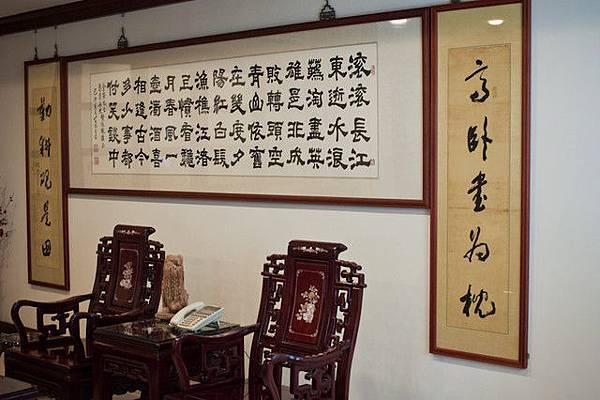 高臥書為枕
滾滾長江
東逝水浪
花淘盡英
雄是非成
敗轉頭空
青山依舊
在幾度夕
陽紅白髮
漁樵江渚
上慣看秋
月春風一
壺濁酒喜
相逢古今
多少事都
付笑談中
勤耕硯是田